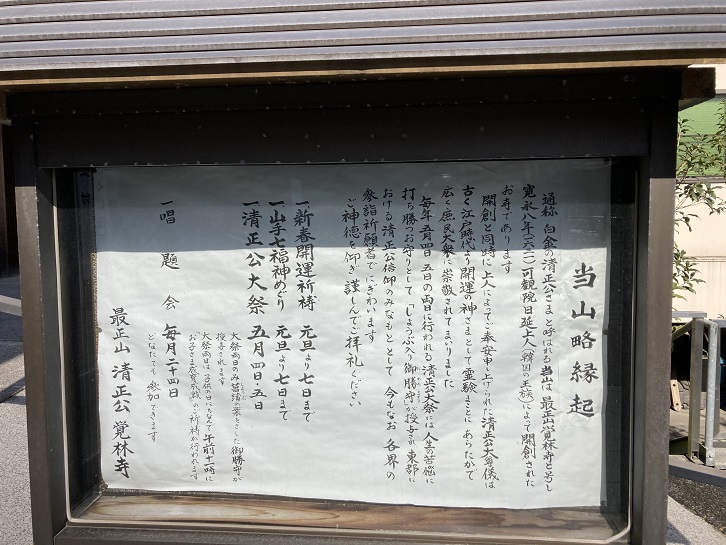 当山略縁起
通称 白金の清正公さまと呼ばれる当山は 最正山覚林寺と号し
寛永八年(一六三一)可観院日延上人(韓国の王族)によって開創された
お寺であります
開創と同時に上人によってご奉安申し上げられた清正公大尊儀は
古く江戸時代より開運の神さまとして霊験まことにあらたかで
広く庶民大衆に崇敬されてまいりました
毎年五月四・五日の両日に行われる清正公大祭には 人生の苦悩に
打ち勝つお守りとして「しょうぶ入り御勝守」が授与され 東都に
おける清正公信仰のみなもととして 今もなお 各界の
参詣祈願者でにぎわいます
ご神徳を仰ぎ謹しんでご拝礼ください
一新春開運祈祷 元旦より七日まで
一山手七福神めぐり 元旦より七日まで
一清正公大祭 五月四日・五日
大祭両日のみ菖蒲の葉を
いた御勝守が
授与されます
大祭両日は 子供の日にちなんで 午前十一時に
「お子さま成育成就」のご祈祷が行われます
一唱題会 毎月二十四日
どなたでも参加できます
最正山 清正公 覚林寺